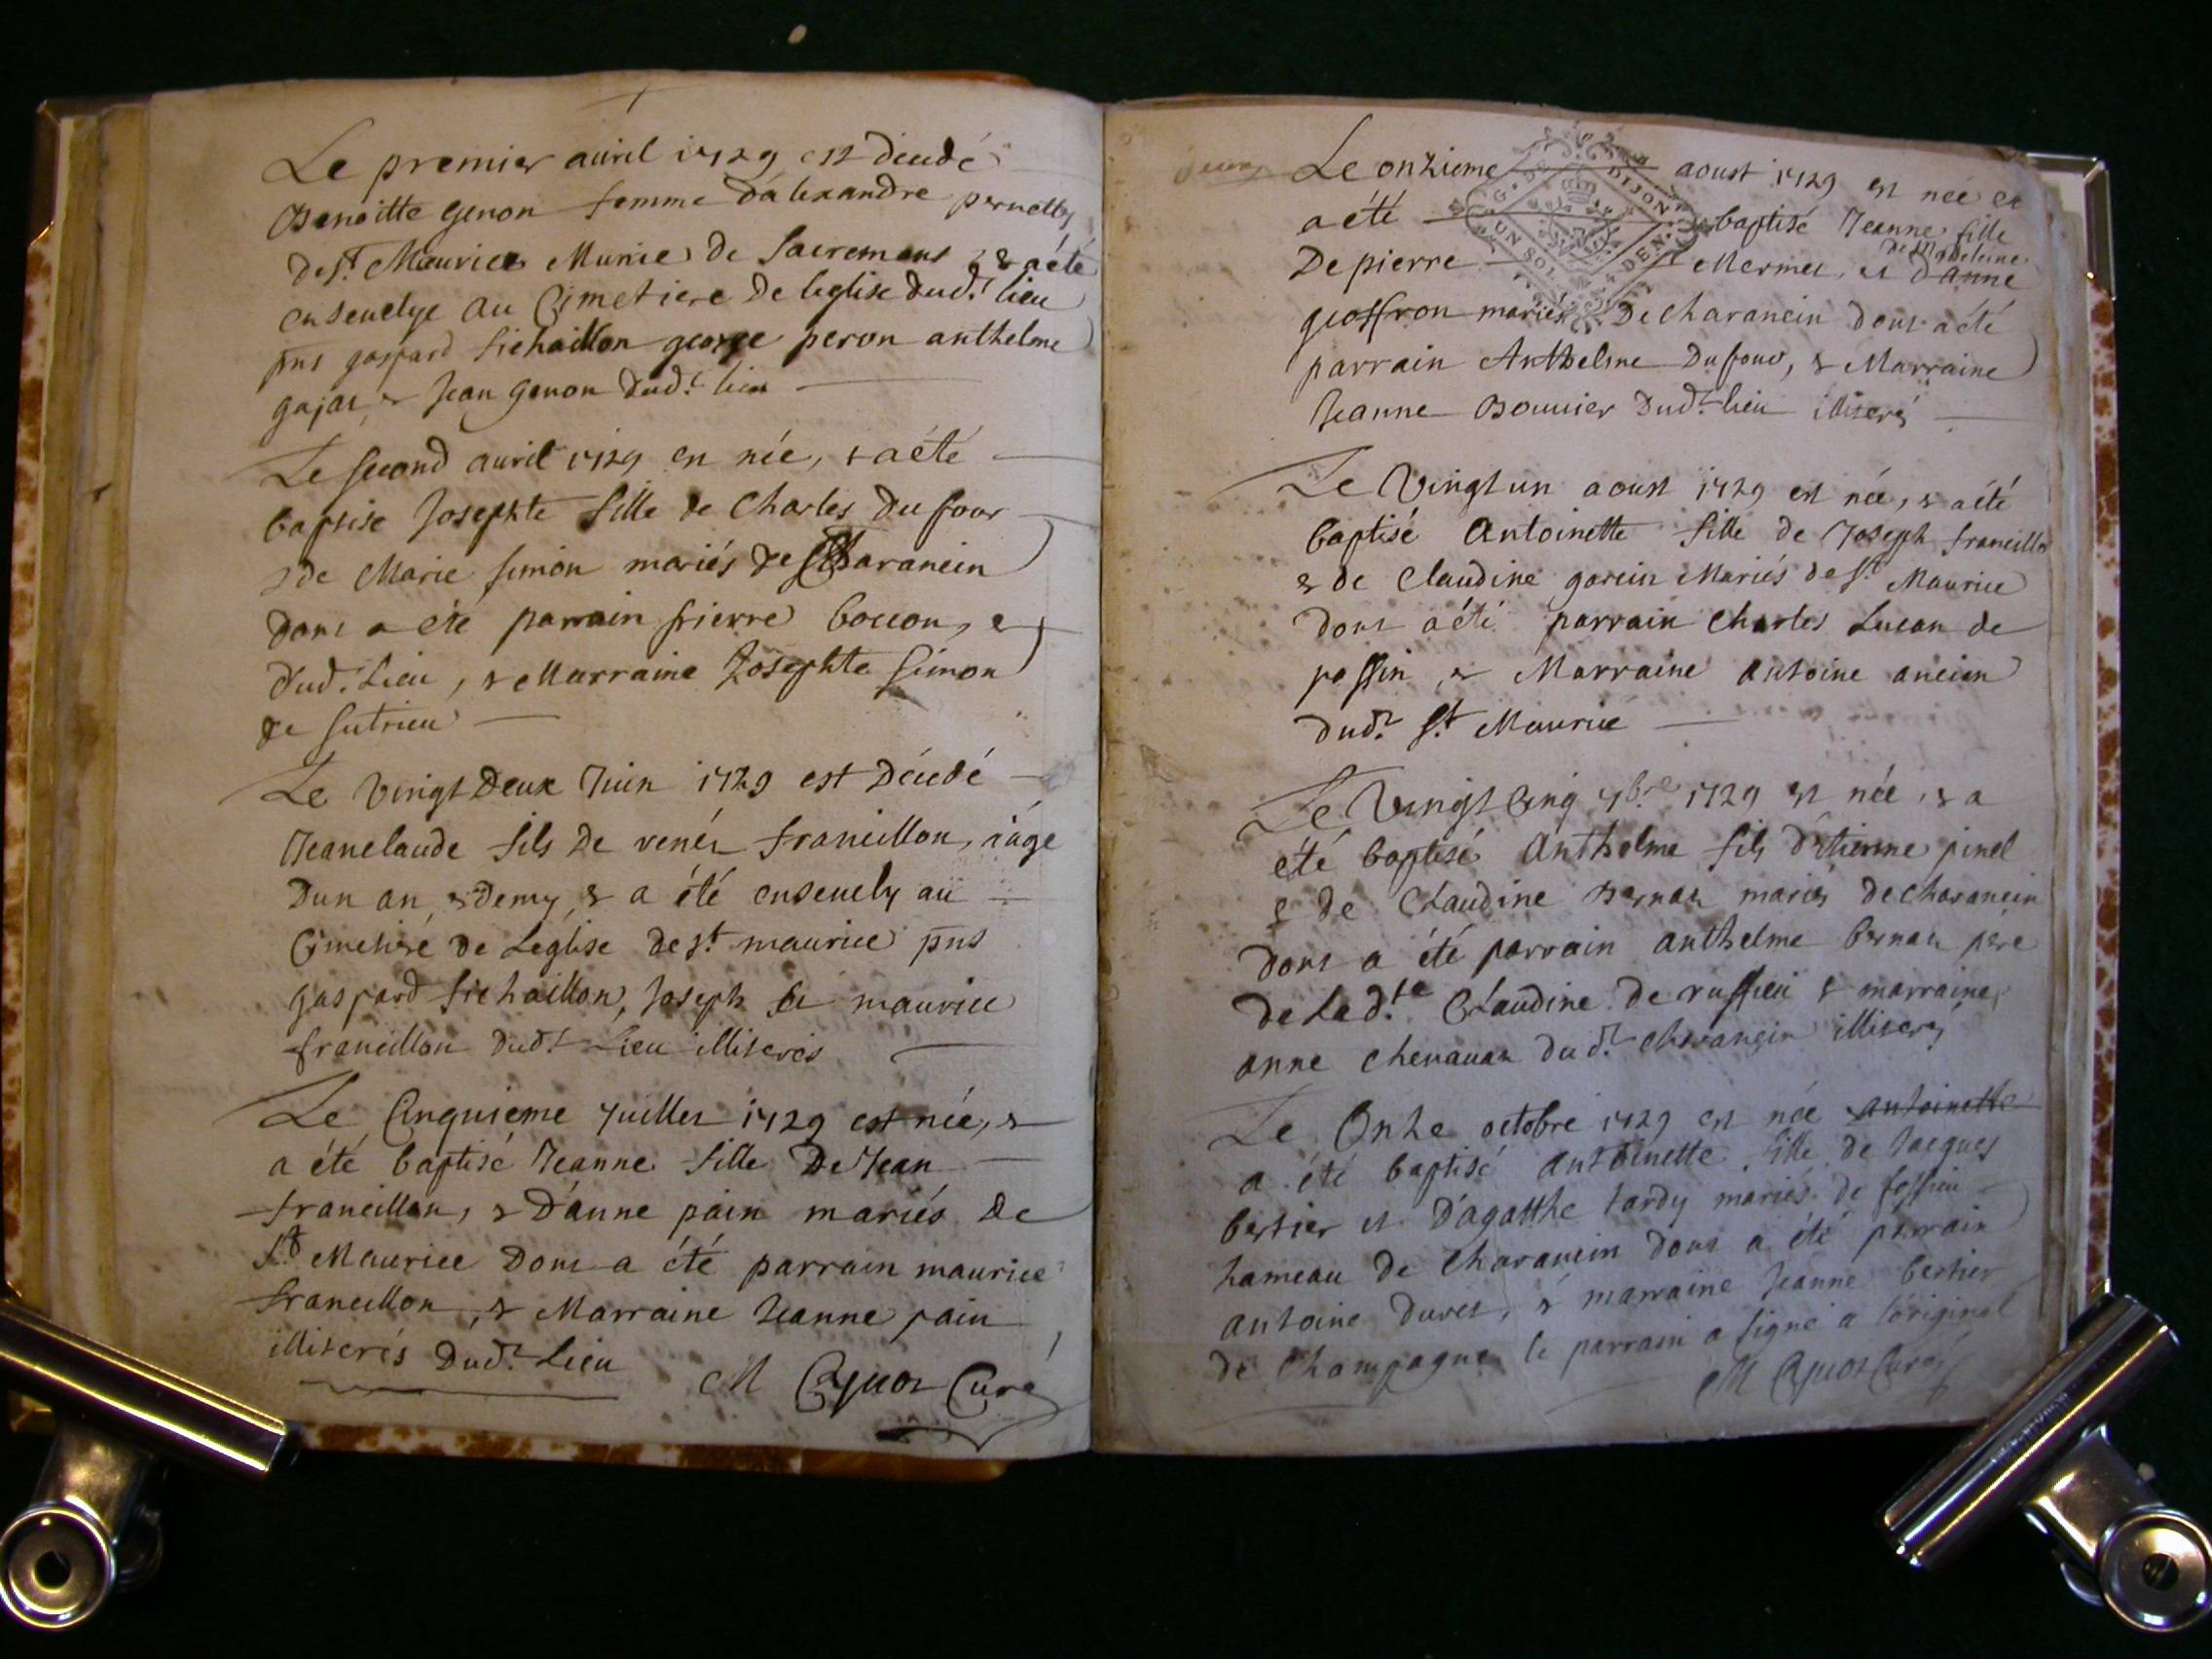 Le premier auril 1729 est décédé
Benoitte genon femme d'alexandre pernollet
de St Maurice Munie de Sacremens & a été
enseuelye au Cimetiere de leglise dud.t lieu
pnts gaspard fichaillon george peron anthelme
gajar & Jean genon dud.t lieu
Le second auril 1729 est née, & a été
baptisé Josephte fille de Charles du four
& de Marie simon mariés de Charancin
dont a été parrain pierre bocon,
dud. Lieu, & Marraine Josephte Simon
de sutrieu
Le Vingt Deux Juin 1729 est Décédé
Jeanclaude fils de renés francillon, áage
Dun an, & demy, & a été enseuely au
Cimetiere de Leglise de St maurice pnts
gaspard fichaillon, Joseph & maurice
francillon dud.t Lieu illiterés
Le Cinquieme Juillet 1729 est née, &
a été baptisé Jeanne fille De Jean
francillon, & D'anne pain mariés de
St Maurice Dont a été parrain maurice
francillon, & Marraine Jeanne pain
illiterés Dud.t Lieu
M Curé
Le onzieme aoust 1729 est née et
a été baptisé Jeanne fille
De pierre Mermet, et d'anne
de Madeleine
geoffron mariés De charancin dont a été
parrain Anthelme Dufour, & Marraine
Jeanne Bouuier Dud.t lieu illiterés
G. DE DIJON
UN SOL DEN.
Le Vingt un aoust 1729 est née, & a été
baptisé Antoinette fille de Joseph francillo
& de Claudine garcin Mariés de St Maurice
dont a été parrain Charles Lucan de
passin & Marraine antoine ancian
dud.t St Maurice
Le Vingt Cinq 7bre 1729 est née, & a
été baptisé Anthelme fils d'étienne pinel
& de Claudine Bernar mariés de charancin
dont a été parrain anthelme bernar père
de Lad.te Claudine de ruffieu & marraine
anne chenauar dud.t charancin illiterés
Le Onze octobre 1729 est née antoinette
a été baptisé antoinette fille de Jacques
bertier et D'agatthe tardy mariés de fossieu
hameau de Charancin dont a été parrain
antoine duret, & marraine Jeanne bertier
de Champagne le parrain a signé a l'original
M Curé